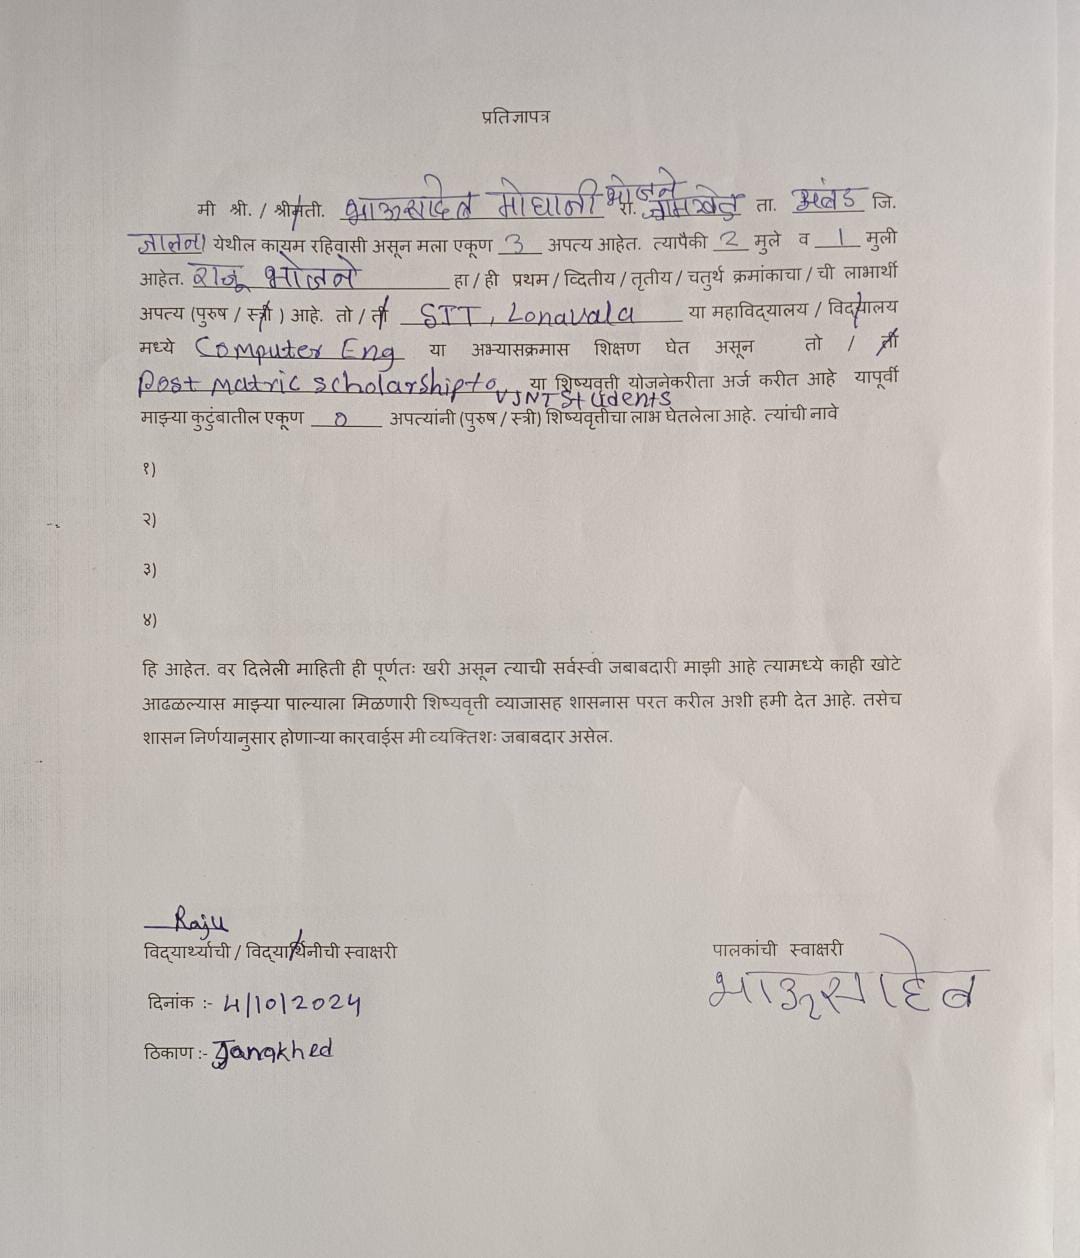 प्रतिज्ञापत्र
मी श्री. / श्रीमती. भाऊसाहेब मोघाजी भोजने रा. जामखेड ता. अंबड जि.
जालना येथील कायम रहिवासी असून मला एकूण 3 अपत्य आहेत. त्यापैकी 2 मुले व 1 मुली
आहेत. राजू भोजने हा / ही प्रथम / व्दितीय / तृतीय / चतुर्थ क्रमांकाचा / ची लाभार्थी
अपत्य (पुरुष / स्त्री ) आहे. तो / ती SIT, Lonavala या महाविद्यालय / विद्यालय
मध्ये Computer Eng या अभ्यासक्रमास शिक्षण घेत असून तो / ती
Post matric scholarship to VJNT Students या शिष्यवृत्ती योजनेकरीता अर्ज करीत आहे यापूर्वी
माझ्या कुटुंबातील एकूण 0 अपत्यांनी (पुरुष / स्त्री) शिष्यवृत्तीचा लाभ घेतलेला आहे. त्यांची नावे
१)
२)
३)
४)
हि आहेत. वर दिलेली माहिती ही पूर्णतः खरी असून त्याची सर्वस्वी जबाबदारी माझी आहे त्यामध्ये काही खोटे
आढळल्यास माझ्या पाल्याला मिळणारी शिष्यवृत्ती व्याजासह शासनास परत करील अशी हमी देत आहे. तसेच
शासन निर्णयानुसार होणाऱ्या कारवाईस मी व्यक्तिशः जबाबदार असेल.
Raju
विद्यार्थ्याची / विद्यार्थिनीची स्वाक्षरी
पालकांची स्वाक्षरी
भाऊसाहेब
दिनांक :- 4/10/2024
ठिकाण :- Jamkhed